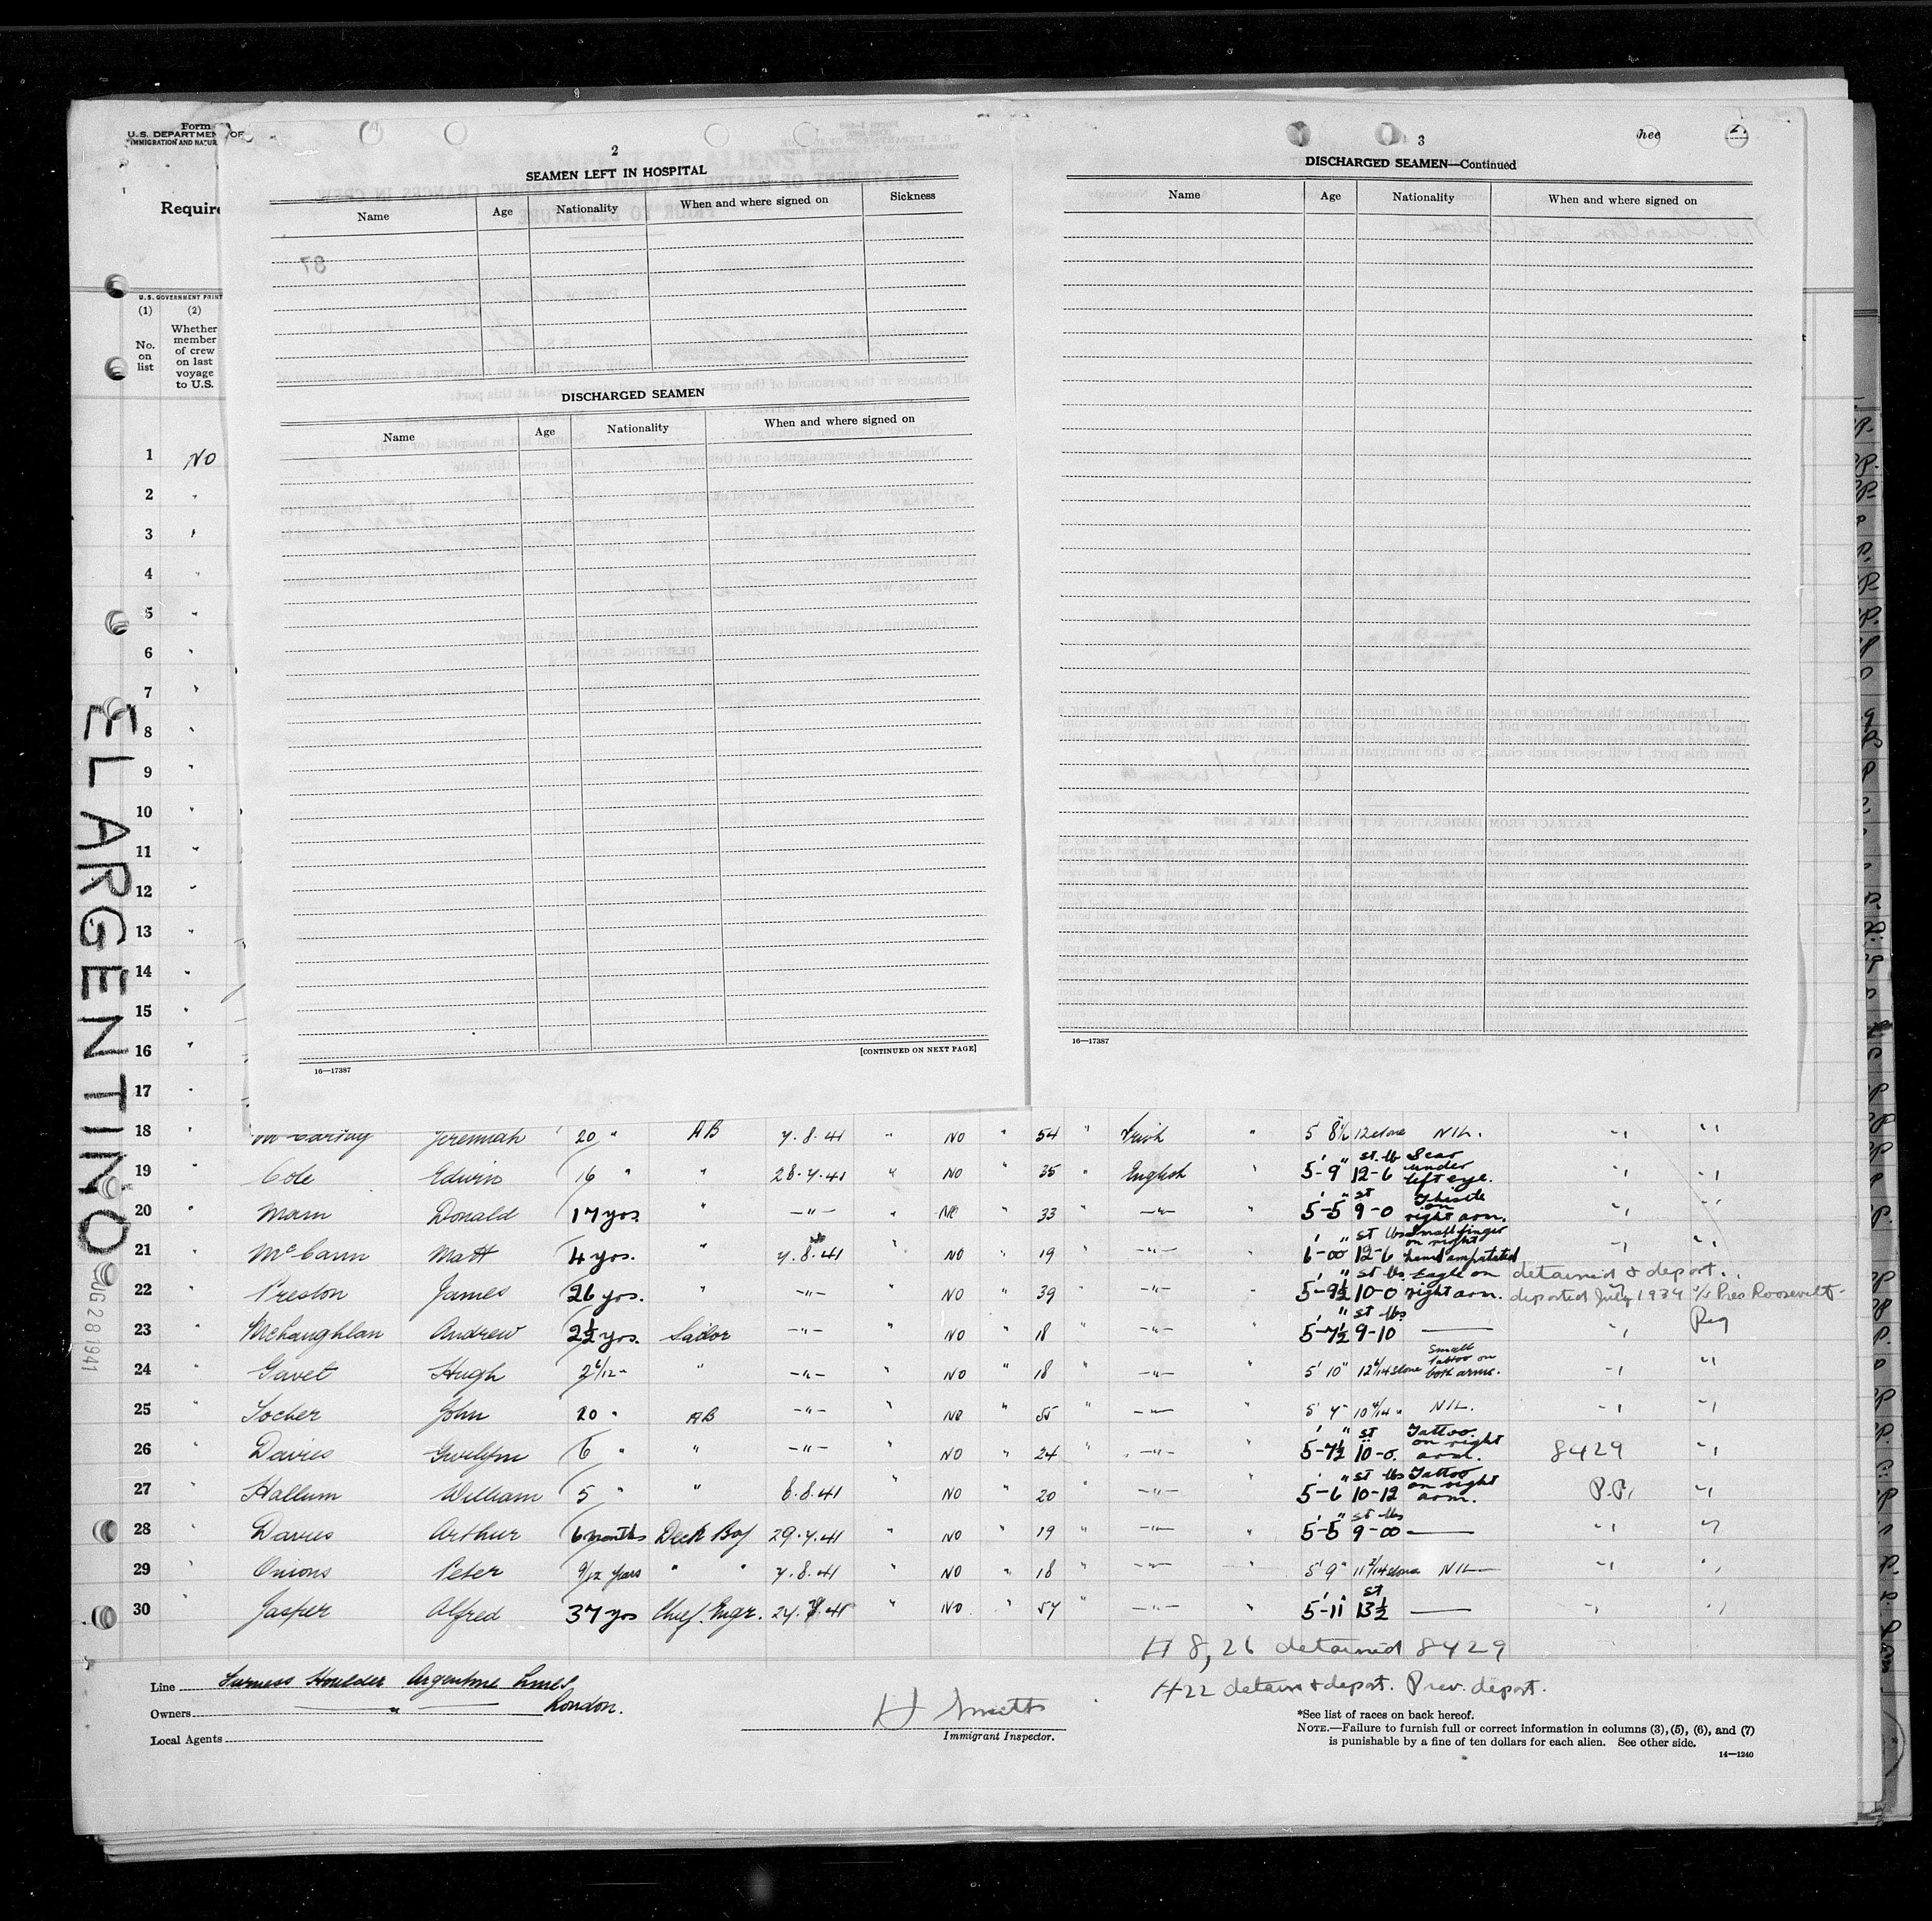 Form
U.S. DEPARTMENT OF
IMMIGRATION AND NATUR
Require
U.S. GOVERNMENT PRINT
(1) (2)
No. on list
Whether member of crew on last voyage to U.S.
ELARGENTINO
UG 28 1941
2
SEAMEN LEFT IN HOSPITAL
Name Age Nationality When and where signed on Sickness
DISCHARGED SEAMEN
Name Age Nationality When and where signed on
[CONTINUED ON NEXT PAGE]
16—17387
3
hee
DISCHARGED SEAMEN—Continued
Name Age Nationality When and where signed on
16—17387
1 NO
2 "
3 "
4 "
5 "
6 "
7 "
8 "
9 "
10 "
11 "
12 "
13 "
14 "
15 "
16 "
17 "
18 McCarthy Jeremiah 20 " AB 7.8.41 " NO " 54 " Irish " 5 8½ 12 stone NIL. " "
19 " Cole Edwin 16 " " 28.7.41 " NO " 35 " English " 5'-9" 12 st-6 lb Scar under left eye. " "
20 " Mann Donald 17 yrs. " -"- " NO " 33 " -"- " 5'-5" 9 st-0 Thistle on right arm. " "
21 " McCann Matt 4 yrs. " 7.8.41 " NO " 19 " -"- " 6'-00" 12 st-6 lbs Small finger on right hand amputated " "
22 " Preston James 26 yrs. " -"- NO " 39 " -"- " 5'-9½" 10 st-0 lbs Eagle on right arm. detained & deport. deported July 1934 s/s Pres Roosevelt.
23 " McLaughlan Andrew 2½ yrs. Sailor -"- " NO " 18 " -"- 5'-7½" 9 st-10 lbs — " Reg
24 " Gavet Hugh 2 6/12 - " -"- " NO " 18 " -"- " 5' 10" 12 6/14 stone small tattoo on both arms. " "
25 " Locher John 20 " AB -"- " NO " 55 " -"- " 5' 7" 10 4/14 " NIL. " "
26 " Davies Gwilym 6 " " -"- " NO " 24 " -"- " 5'-7½" 10 st-0. Tattoo on right arm. 8429 "
27 " Hallum William 5 " " 6.8.41 " NO " 20 " -"- " 5'-6" 10 st-12 lbs Tattoo on right arm. P.P. "
28 " Davies Arthur 6 months Deck Boy 29.7.41 " NO " 19 " -"- " 5'-5" 9 st-00 lbs — " "
29 " Onions Peter 9/12 years " " 7.8.41 " NO " 18 " -"- " 5' 9" 11 2/14 stone NIL — " "
30 " Jasper Alfred 37 yrs Chief. Engr. 24.7.41 " NO " 57 " -"- " 5'-11" 13½ st — " "
# 8, 26 detained 8429
#22 detain & deport. Prev. deport.
Line Furness Houlder Argentine Lines
Owners — " — London.
Local Agents
H Smetts
Immigrant Inspector.
*See list of races on back hereof.
NOTE.—Failure to furnish full or correct information in columns (3), (5), (6), and (7)
is punishable by a fine of ten dollars for each alien. See other side.
14—1240